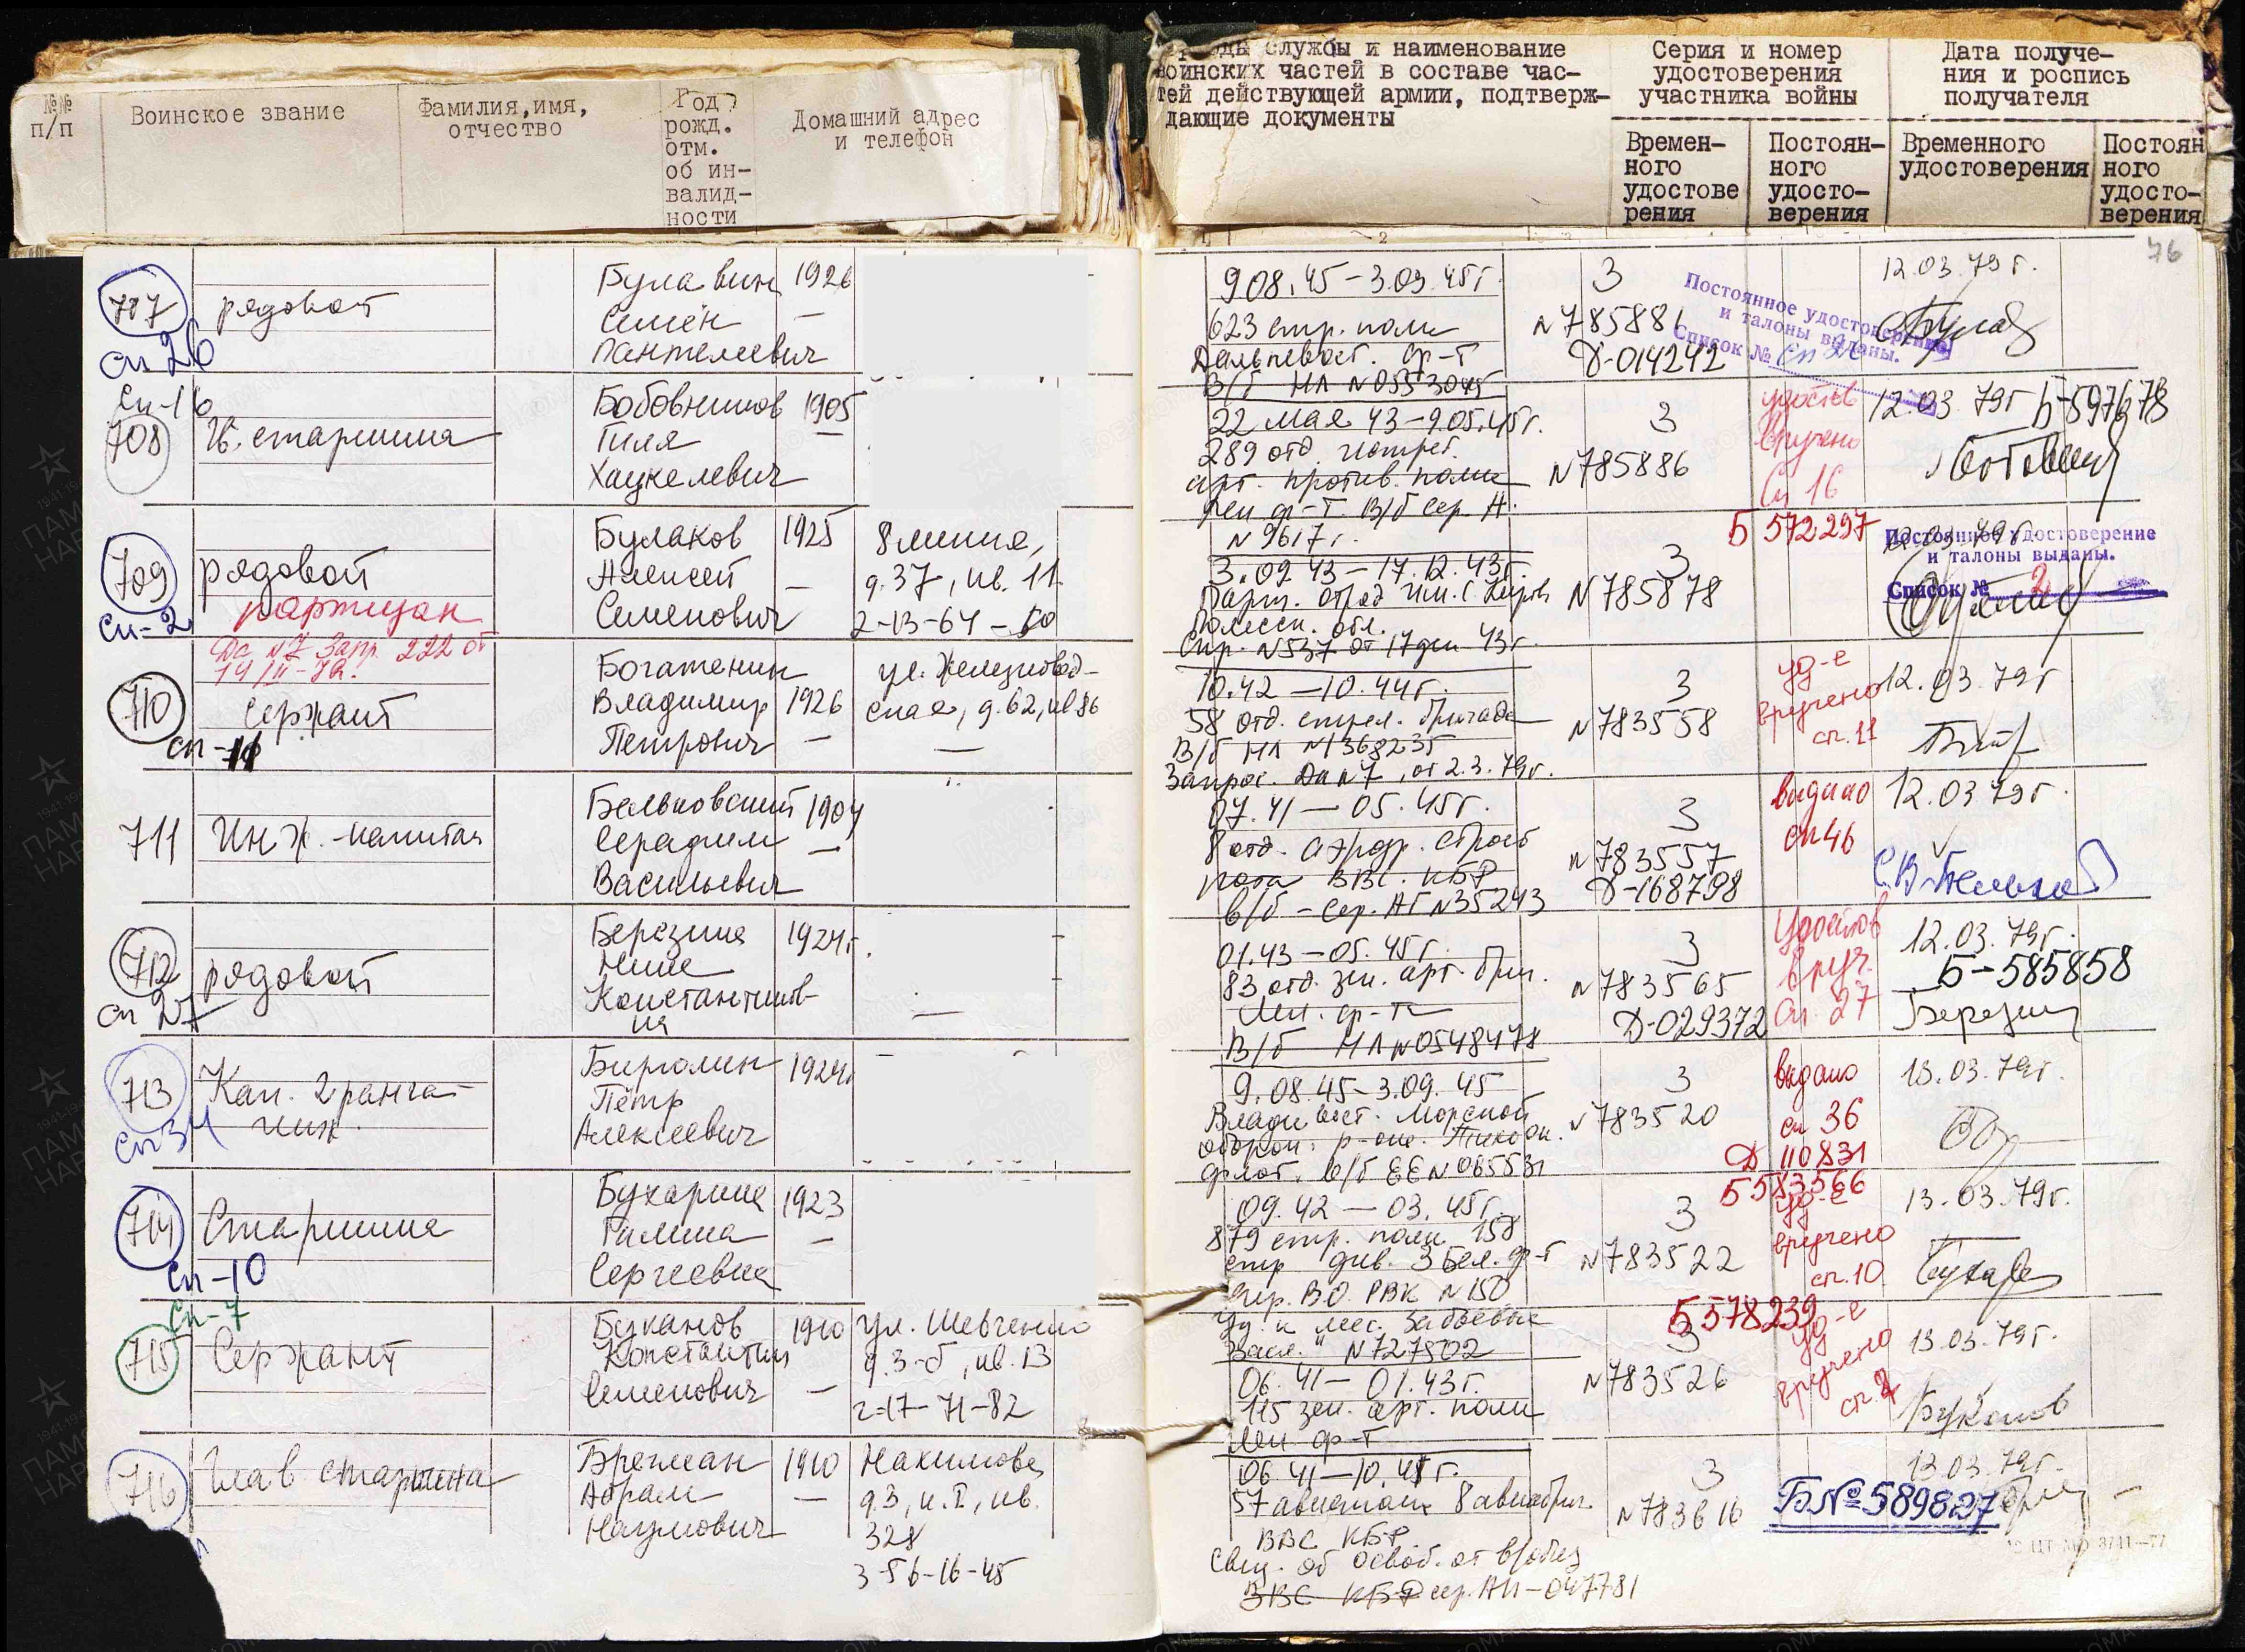 №№
п/п
Воинское звание
Фамилия,имя,
отчество
Год
рожд.
отм.
об ин-
валид-
ности
Домашний адрес
и телефон
службы и наименование
воинских частей в составе час-
тей действующей армии, подтверж-
дающие документы
Серия и номер
удостоверения
участника войны
Времен-
ного
удостове
рения
Постоян-
ного
удосто-
верения
Дата получе-
ния и роспись
получателя
Временного
удостоверения
Постоян
ного
удосто-
верения
76
707
сп 26
рядовой
Булавин
Семён
Пантелеевич
1926
908.45-3.03.45г.
623 стр. полк
Дальневост. фр-т
В/б НЛ N0553045
3
N785881
Д-014242
Постоянное удостоверение
и талоны выданы.
Список № Сп 26
12.03.79г.
Сп-16
708
Гв. старшина
Бобовников
Гиля
Хацкелевич
1905
22 мая 43-9.05.45г.
289 отд. истреб.
арт. против. полк
Лен фр-т В/б сер. Н.
N 9617г.
3
N785886
удостов
вручено
Сп 16
12.03.79г Б-597678
709
Сп-2
рядовой
партизан
Булаков
Алексей
Семенович
1925
8 линия,
д.37, кв. 11
2-13-64-50
3.09.43-17.12.43г.
Парт. отряд им. С. Кирова
Полесск. обл.
Спр. N537 от 17 дек 43г.
3
N785878
Б 572297
12.03.79г
Постоянное удостоверение
и талоны выданы.
Список № 2
Дс N7 Запр. 222 от
14/II-79.
710
сп-11
сержант
Богатенин
Владимир
Петрович
1926
ул. Железновод-
ская, д.62, кв 86
10.42-10.44г.
58 отд. стрел. бригада
В/б НЛ N1368235
Запрос. Дс N7, от 2.3.79г.
3
N783558
уд-е
вручено
сп.11
12.03.79г
711
Инж.-капитан
Бельковский
Серафим
Васильевич
1904
07.41-05.45г.
8 отд. аэродр. строит
рота ВВС. КБФ
в/б-сер. АГ N35243
3
N783557
Д-168798
выдано
сп46
12.03.79г.
712
Сп 27
рядовой
Березина
Нина
Константинов-
на
1924г.
01.43-05.45г.
83 отд. зен. арт. бриг.
Лен. фр-т
В/б НЛ N0548478
3
N783565
Д-029372
Удостов
вруч.
Сп. 27
12.03.79г.
Б-585858
Березин
713
Сп34
Кап. 2 ранга-
инж.
Бирюлин
Пётр
Алексеевич
1924г
9.08.45-3.09.45
Владивост. Морской
оборон. р-он. Тихоок.
флот. в/б ЕЕ N065531
3
N783520
выдано
сп 36
Д 110831
13.03.79г.
714
Сп-10
Старшина
Бухарина
Галина
Сергеевна
1923
09.42-03.45г.
879 стр. полк 158
стр див. 3 Бел. фр-т
Спр. ВО РВК N150
Уд. к мед. За боевые
засл." N727502
3
N783522
Б 583566
уд-е
вручено
сп.10
13.03.79г.
Сп-7
715
Сержант
Буканов
Константин
Семенович
1910
ул. Шевченко
д.3-б, кв.13
2-17-71-82
06.41-01.43г.
115 зен. арт. полк
Лен фр-т
3
N783526
Б 578239
уд-е
вручено
сп.7
13.03.79г.
Буканов
716
Глав старшина
Брегман
Абрам
Наумович
1910
Нахимова
д.3, к.I, кв.
328
3-56-16-45
06.41-10.41г.
57 авиаполк 8 авиабриг.
ВВС КБФ.
Свид. об освоб. от в/обяз
ВВС КБФ сер. АН-047781
3
N783616
Б№589827
13.03.79г.